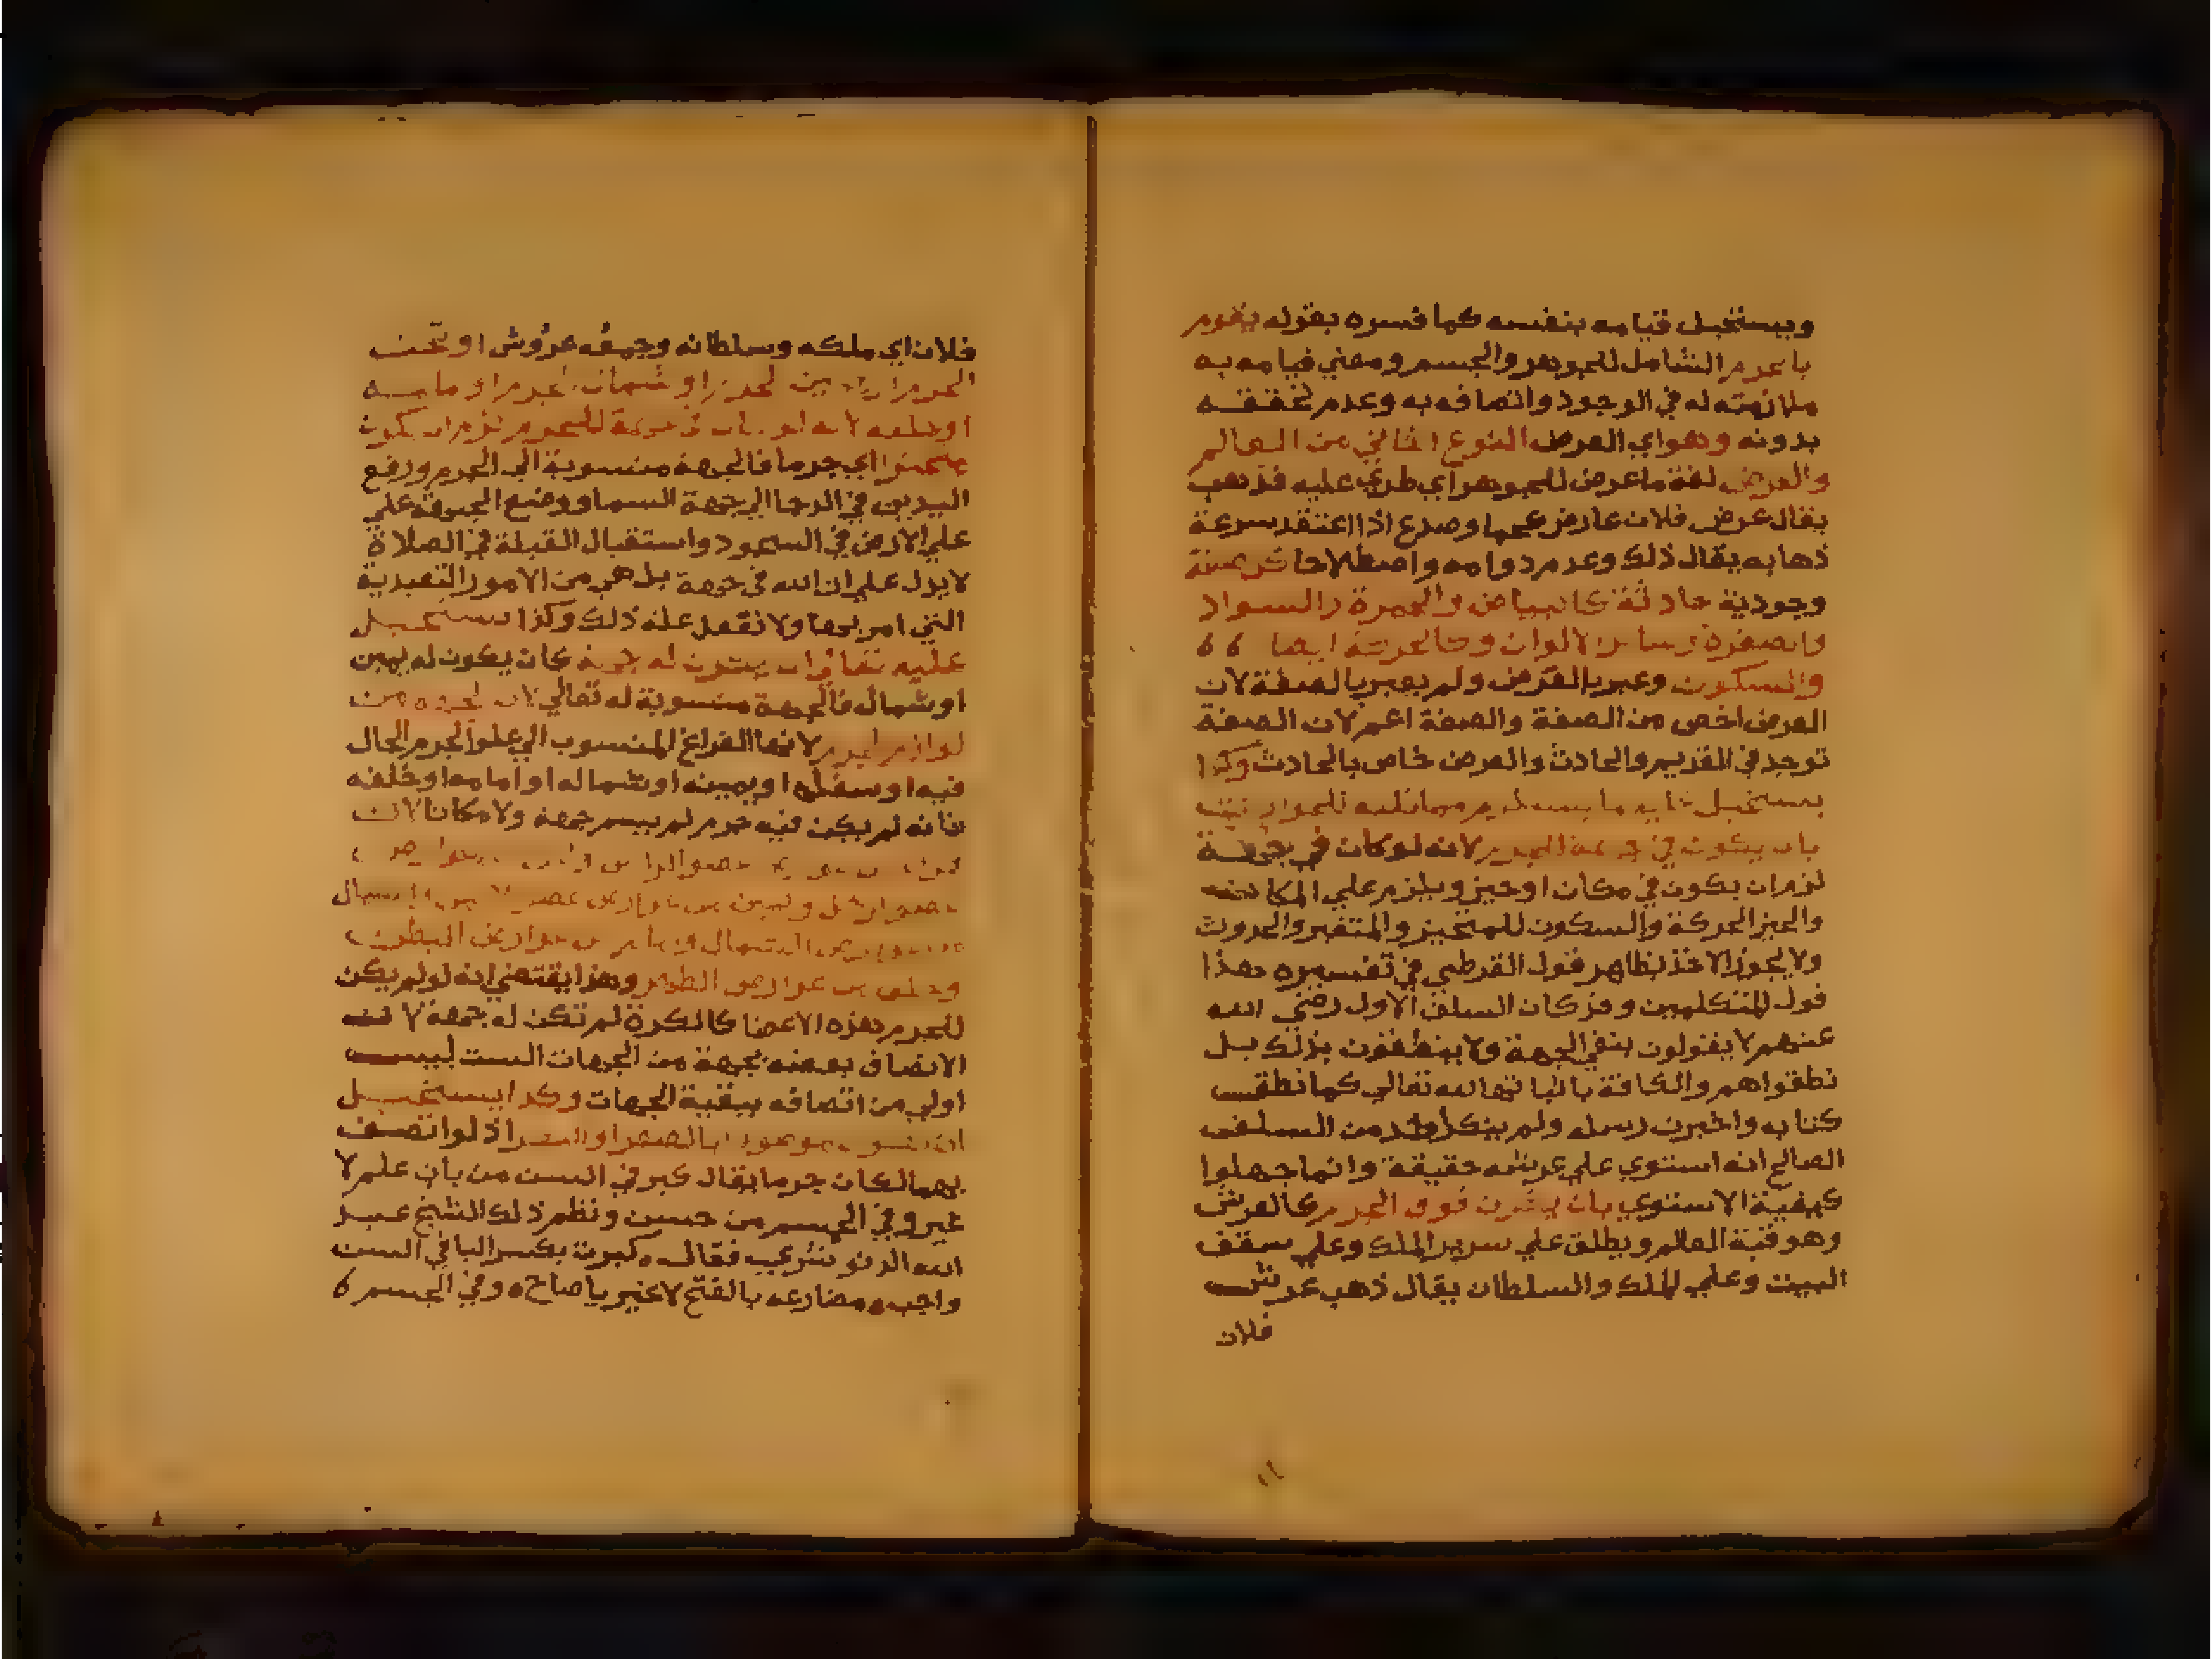 ويستحيل قيامه بنفسه كما فسره بقوله يقوم
بالجرم الشامل للجوهر والجسم ومعني قيامه به
ملازمته له في الوجود واتصافه به وعدم تحققه
بدونه وهو اي العرض النوع الثاني من العالم
والعرض لغة ما عرض للجوهر اي طري عليه فذهب
يقال عرض فلان عارض حمي او صدع اذا اعتقد سرعة
ذهابه يقال ذلك وعدم دوامه واصطلاحا كل صفة
وجودية حادثة كالبياض والحمرة والسواد
والصفرة وسائر الالوان وكالحركة ايضا
والسكون وعبر بالعرض ولم يعبر بالصفة لان
العرض اخص من الصفة والصفة اعم لان الصفة
توجد في القديم والحادث والعرض خاص بالحادث وكذا
يستحيل عليه ما يستلزم مماثلته للحوادث
بان يكون في جهة الجرم لانه لو كان في جهة
لزم ان يكون في مكان او حيز ويلزم علي المكان
والحيز الحركة والسكون للمتحيز والمتغير والحدوث
ولا يجوز الاخذ بظاهر قول القرطبي في تفسيره هذا
قول المتكلمين وقد كان السلف الاول رضي الله
عنهم لا يقولون بنفي الجهة ولا ينطقون بذلك بل
نطقوا هم والكافة باثباتها لله تعالي كما نطق
كتابه واخبرت رسله ولم ينكر احد من السلف
الصالح انه استوي علي عرشه حقيقة وانما جهلوا
كيفية الاستوي بان يكون فوق الجرم كالعرش
وهو قبة العالم ويطلق علي سرير الملك وعلي سقف
البيت وعلي الملك والسلطان يقال ذهب عرش
فلان
١١
فلان اي ملكه وسلطانه وجمعه عروش او تحت
الجرم او يمين الجرم او شمال الجرم او امامه
او خلفه لانه لو كان في جهة للجرم لزم ان يكون
متحيزا اي جرما فالجهة منسوبة الي الجرم ورفع
اليدين في الدعا الي جهة السما ووضع الجبهة علي
علي الارض في السجود واستقبال القبلة في الصلاة
لا يدل علي ان الله في جهة بل هي من الامور التعبدية
التي امر بها ولا نعقل علة ذلك وكذا يستحيل
عليه تعالي ان يكون له جهة كان يكون له يمين
او شمال فالجهة منسوبة له تعالي لان الجهة من
لوازم الجرم لانها الفراغ المنسوب الي علو الجرم الحال
فيه او سفله او يمينه او شماله او امامه او خلفه
فانه لم يكن فيه جرم لم يسم جهة ولا مكانا لان
من عوارض البطن
وخلف من عوارض الظهر وهذا يقتضي انه لو لم يكن
للجرم هذه الاعضا كالكرة لم تكن له جهة لان
الاتصاف بعضه بجهة من الجهات الست ليس
اولي من اتصافه ببقية الجهات وكذا يستحيل
بالصغر او الكبر اذ لو اتصف
بهما لكان جرما يقال كبر في السن من باب علم لا
غير وفي الجسم من حسن ونظم ذلك الشيخ عبد
الله الدنوشري فقال كبرت بكسر البا في السن
واجب مضارعه بالفتح لا غير يا صاح وفي الجسم